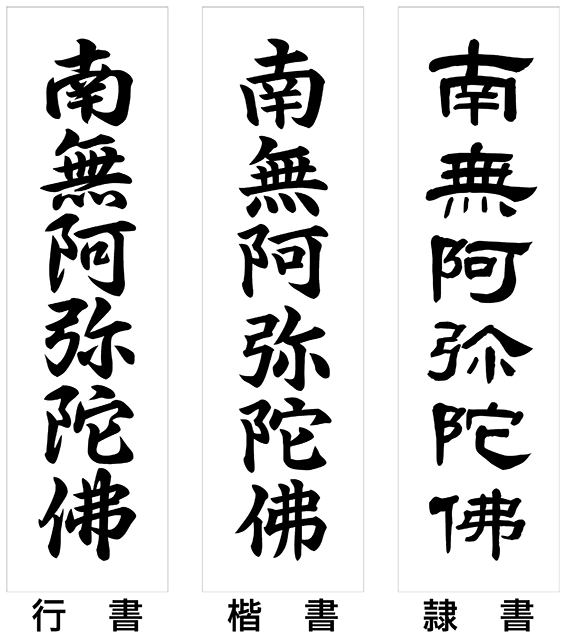 南無阿弥陀佛
行書
南無阿弥陀佛
楷書
南無阿弥陀佛
隷書